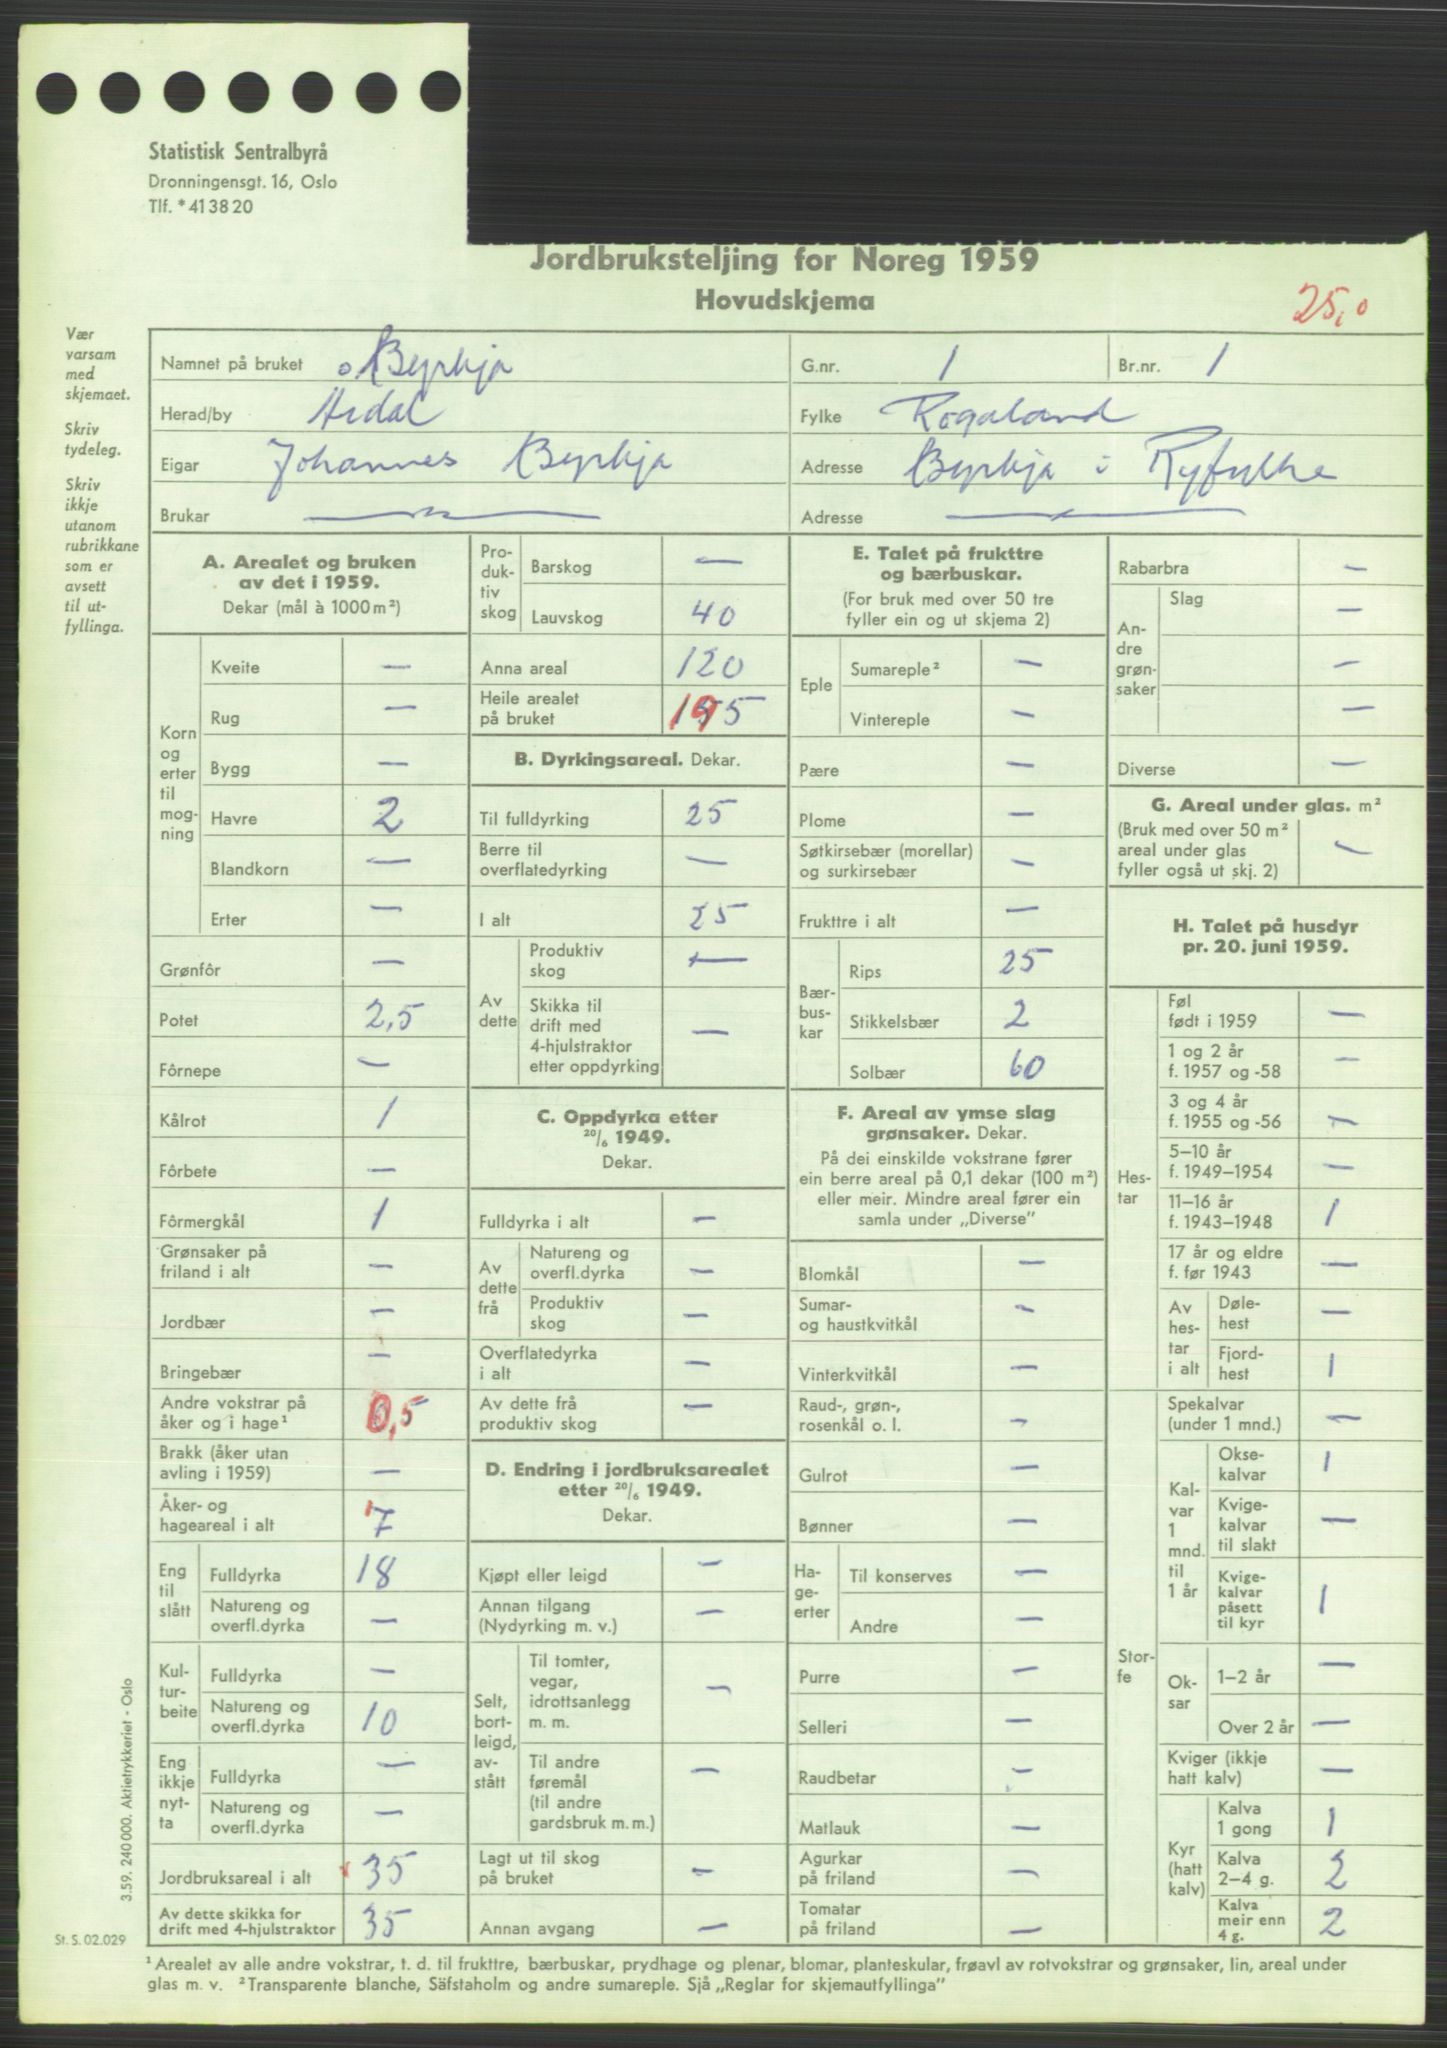 Statistisk Sentralbyrå
Dronningensgt. 16, Oslo
Tlf. *41 38 20
Jordbruksteljing for Noreg 1959
Hovudskjema
25,0
Vær
varsam
med
skjemaet.
Skriv
tydeleg.
Skriv
ikkje
utanom
rubrikkane
som er
avsett
til ut-
fyllinga.
Namnet på bruket Byrkja G.nr. 1 Br.nr. 1
Herad/by Årdal Fylke Rogaland
Eigar Johannes Byrkja Adresse Byrkja i Ryfylke
Brukar — Adresse —
A. Arealet og bruken
av det i 1959.
Dekar (mål à 1000 m²)
Korn
og
erter
til
mog-
ning
Kveite —
Rug —
Bygg —
Havre 2
Blandkorn —
Erter —
Grønfôr —
Potet 2,5
Fôrnepe —
Kålrot 1
Fôrbete —
Fôrmergkål 1
Grønsaker på
friland i alt —
Jordbær —
Bringebær —
Andre vokstrar på
åker og i hage¹ 0,5
Brakk (åker utan
avling i 1959) —
Åker- og
hageareal i alt 7
Eng
til
slått
Fulldyrka 18
Natureng og
overfl.dyrka —
Kul-
tur-
beite
Fulldyrka —
Natureng og
overfl.dyrka 10
Eng
ikkje
nyt-
ta
Fulldyrka —
Natureng og
overfl.dyrka —
Jordbruksareal i alt 35
Av dette skikka for
drift med 4-hjulstraktor 35
Pro-
duk-
tiv
skog
Barskog —
Lauvskog 40
Anna areal 120
Heile arealet
på bruket 195
B. Dyrkingsareal. Dekar.
Til fulldyrking 25
Berre til
overflatedyrking —
I alt 25
Av
dette
Produktiv
skog —
Skikka til
drift med
4-hjulstraktor
etter oppdyrking —
C. Oppdyrka etter
20/6 1949.
Dekar.
Fulldyrka i alt —
Av
dette
frå
Natureng og
overfl.dyrka —
Produktiv
skog —
Overflatedyrka
i alt —
Av dette frå
produktiv skog —
D. Endring i jordbruksarealet
etter 20/6 1949.
Dekar.
Kjøpt eller leigd —
Annan tilgang
(Nydyrking m. v.) —
Selt,
bort-
leigd,
av-
stått
Til tomter,
vegar,
idrottsanlegg
m. m. —
Til andre
føremål
(til andre
gardsbruk m. m.) —
Lagt ut til skog
på bruket —
Annan avgang —
E. Talet på frukttre
og bærbuskar.
(For bruk med over 50 tre
fyller ein og ut skjema 2)
Eple
Sumareple² —
Vintereple —
Pære —
Plome —
Søtkirsebær (morellar)
og surkirsebær —
Frukttre i alt —
Bær-
bus-
kar
Rips 25
Stikkelsbær 2
Solbær 60
F. Areal av ymse slag
grønsaker. Dekar.
På dei einskilde vokstrane fører
ein berre areal på 0,1 dekar (100 m²)
eller meir. Mindre areal fører ein
samla under „Diverse”
Blomkål —
Sumar-
og haustkvitkål —
Vinterkvitkål —
Raud-, grøn-,
rosenkål o. l. —
Gulrot —
Bønner —
Ha-
ge-
erter
Til konserves —
Andre —
Purre —
Selleri —
Raudbetar —
Matlauk —
Agurkar
på friland —
Tomatar
på friland —
Rabarbra —
An-
dre
grøn-
saker
Slag —
—
—
Diverse —
G. Areal under glas. m²
(Bruk med over 50 m²
areal under glas
fyller også ut skj. 2) —
H. Talet på husdyr
pr. 20. juni 1959.
Hes-
tar
Føl
født i 1959 —
1 og 2 år
f. 1957 og -58 —
3 og 4 år
f. 1955 og -56 —
5–10 år
f. 1949–1954 —
11–16 år
f. 1943–1948 1
17 år og eldre
f. før 1943 —
Av
hes-
tar
i alt
Døle-
hest —
Fjord-
hest 1
Stor-
fe
Spekalvar
(under 1 mnd.) —
Kal-
var
1
mnd.
til
1 år
Okse-
kalvar 1
Kvige-
kalvar
til slakt —
Kvige-
kalvar
påsett
til kyr 1
Ok-
sar
1–2 år —
Over 2 år —
Kviger (ikkje
hatt kalv) —
Kyr
(hatt
kalv)
Kalva
1 gong 1
Kalva
2–4 g. 2
Kalva
meir enn
4 g. 2
3.59. 240 000. Aktietrykkeriet - Oslo
St. S. 02.029
¹ Arealet av alle andre vokstrar, t. d. til frukttre, bærbuskar, prydhage og plenar, blomar, planteskular, frøavl av rotvokstrar og grønsaker, lin, areal under
glas m. v. ² Transparente blanche, Säfstaholm og andre sumareple. Sjå „Reglar for skjemautfyllinga”